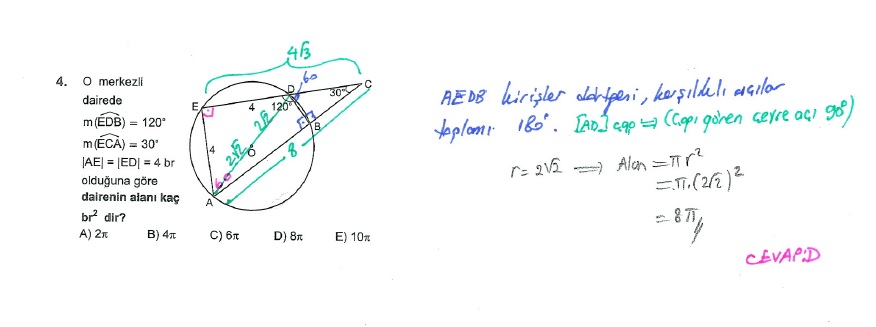 4. O merkezli
dairede
m(EDB) = 120°
m(ECA) = 30°
|AE| = |ED| = 4 br
olduğuna göre
dairenin alanı kaç
br² dir?
A) 2π B) 4π C) 6π D) 8π E) 10π
4√3
C
D
60
30°
E
4
120°
2√2
B
4
2√2
O
8
60
A
AEDB kirişler dörtgeni, karşılıklı açılar
toplamı 180°. [AD] çap ⇒ (Çapı gören çevre açı 90°)
r = 2√2 ⇒ Alan = πr²
= π.(2√2)²
= 8π
CEVAP:D